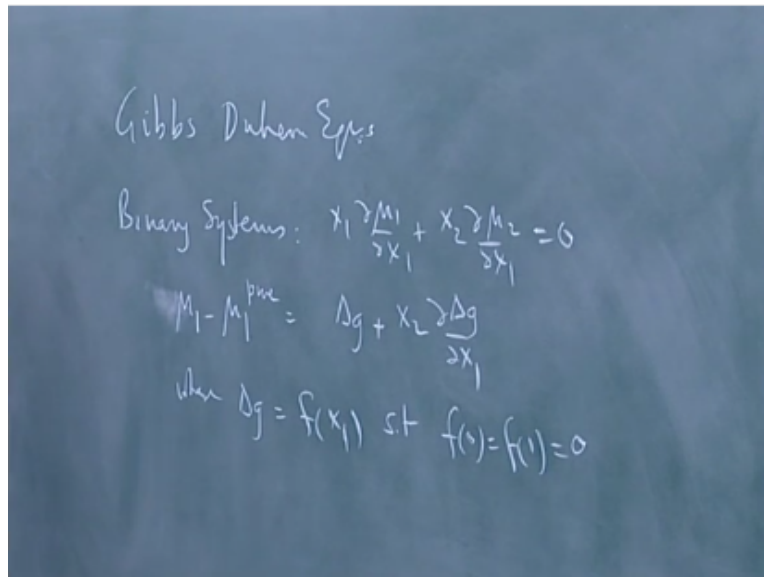 Gibbs Duhem Eqns
Binary Systems: x₁ ∂μ₁/∂x₁ + x₂ ∂μ₂/∂x₁ = 0
μ₁ - μ₁ᵖᵘʳᵉ = Δg + x₂ ∂Δg/∂x₁
where Δg = f(x₁) s.t f(0) = f(1) = 0